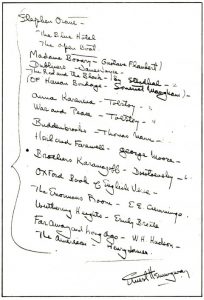 Stephen Crane -
The Blue Hotel
The Open Boat
Madame Bovary - Gustave Flaubert
Dubliners - James Joyce
The Red and the Black - By Stendhal -
Of Human Bondage - Somerset Maugham
Anna Karenina - Tolstoy -
War and Peace - Tolstoy -
Buddenbrooks - Thomas Mann -
Hail and Farewell - George Moore -
Brothers Karamazoff - Dostoevsky -
Oxford Book of English Verse -
The Enormous Room - E.E. Cummings
Wuthering Heights - Emily Bronte
Far Away and Long Ago - W.H. Hudson -
The American - Henry James -
Ernest Hemingway